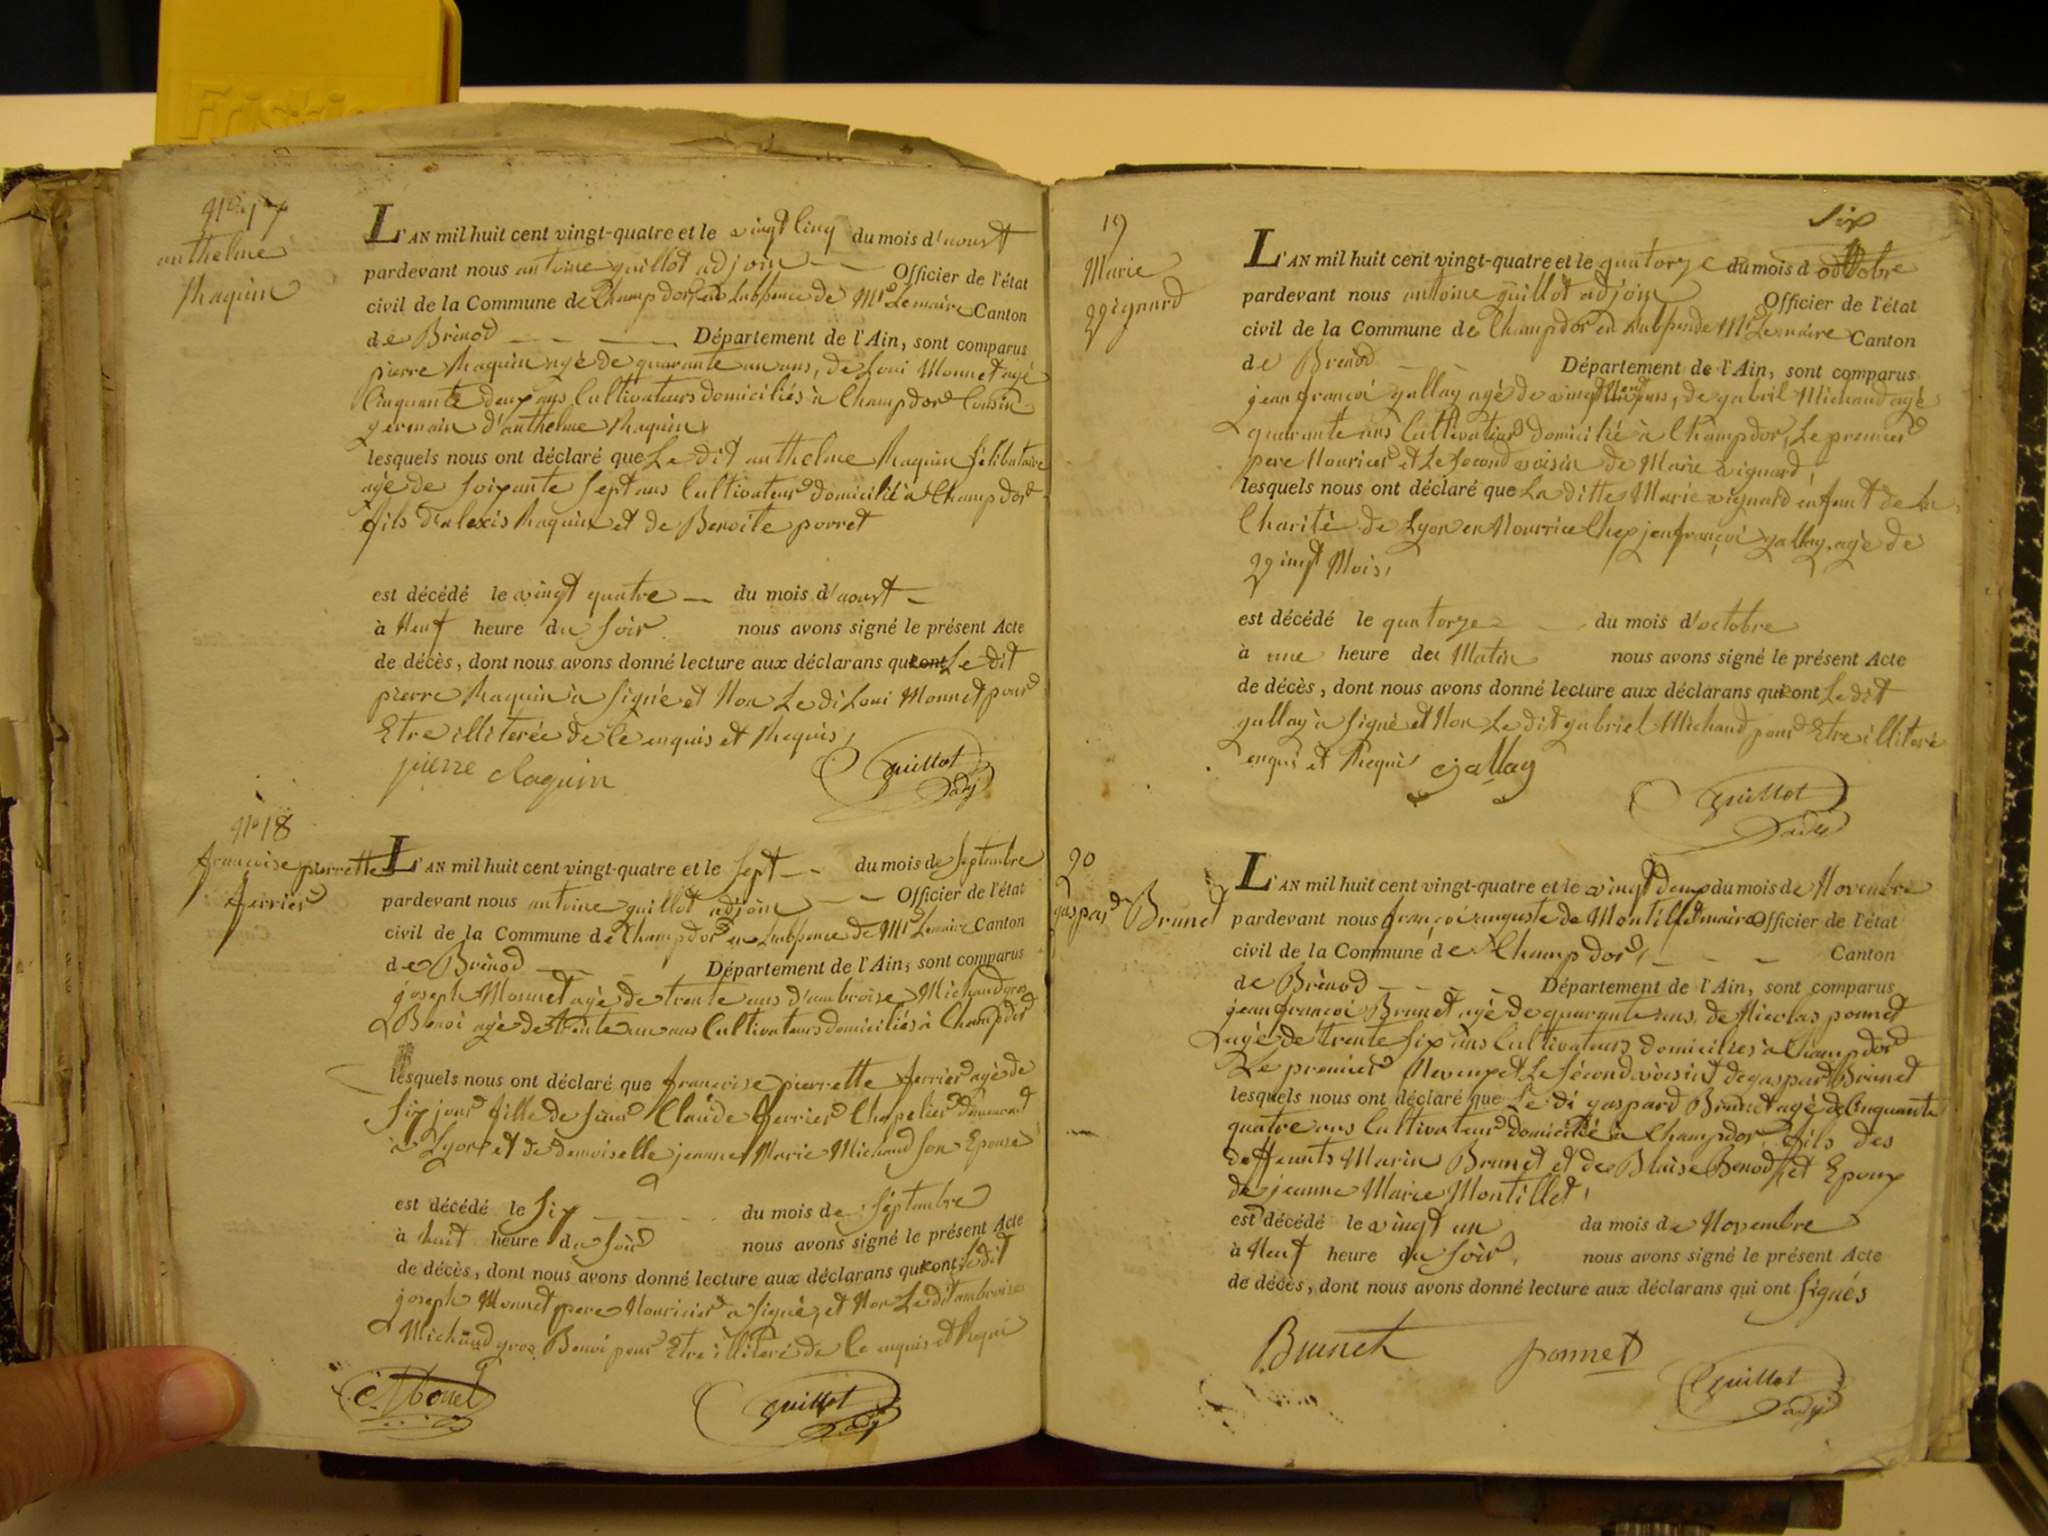 Friskies
N° 17
anthelme
Maquin
L'AN mil huit cent vingt-quatre et le vingt cinq du mois d'aoust
pardevant nous antoine guillot adjoin Officier de l'état
civil de la Commune de Champdor en l'absence de Mr Lemaire Canton
de Brénod Département de l'Ain, sont comparus
pierre Maquin agé de quarante un ans, de Loui Monnet agé
Cinquante deux ans Cultivateurs domiciliés à Champdor Cousin
germain d'anthelme Maquin
lesquels nous ont déclaré que Le dit anthelme Maquin Sélibataire
agé de Soixante Sept ans Cultivateur domicilié à Champdor
fils d'alexis Maquin et de Benoite porret
est décédé le vingt quatre du mois d'aoust
à Neuf heure du Soir nous avons signé le présent Acte
de décès, dont nous avons donné lecture aux déclarans qui ont Le dit
pierre Maquin à Signé et Non Le di Loui Monnet pour
Etre illiterée de Ce enquis et Requis,
pierre Maquin Guillot
adj
N° 18
françoise pierrette
ferrier
L'AN mil huit cent vingt-quatre et le Sept du mois de Septembre
pardevant nous antoine guillot adjoin Officier de l'état
civil de la Commune de Champdor en l'absence de Mr Lemaire Canton
de Brénod Département de l'Ain, sont comparus
joseph Monnet agé de trente ans d'ambroise Michaud gros
Benoi agé de trente un ans Cultivateurs domiciliés à Champdor
lesquels nous ont déclaré que francoise pierrette ferrier agé de
Six jour fille de Sieur Claude ferrier Chapelier demeurant
à Lyon et de Demoiselle jeanne Marie Michaud Son Epouse
est décédé le Six du mois de Septembre
à huit heure du Soir nous avons signé le présent Acte
de décès, dont nous avons donné lecture aux déclarans qui ont Le dit
joseph Monnet pere Nouricier a Signé, et Non Le dit ambroise
Michaud gros Benoi pour Etre illiteré de Ce enquis et Requi
Guillot
adj
Six
19
Marie
Vignard
L'AN mil huit cent vingt-quatre et le quatorze du mois d octobre
pardevant nous antoine guillot adjoin Officier de l'état
civil de la Commune de Champdor en l'absence de Mr Lemaire Canton
de Brénod Département de l'Ain, sont comparus
jean françoi gallay agé de vingt Neuf ans, de gabril Michaud agé
quarante ans Cultivateur domicilié à Champdor, Le premier
pere Nouricier et Le Second voisin de Marie vignard,
lesquels nous ont déclaré que La ditte Marie vignard enfant de La
Charité de Lyon en Nourrice Chez jean françoi gallay, agé de
Vingt Mois,
est décédé le quatorze du mois d'octobre
à une heure du Matin nous avons signé le présent Acte
de décès, dont nous avons donné lecture aux déclarans qui ont Le dit
gallay à Signé et Non Le dit gabriel Michaud pour Etre illiteré
enqui et Requi Gallay
Guillot
adj
20
gaspard Brunet
L'AN mil huit cent vingt-quatre et le vingt deux du mois de Novembre
pardevant nous françoi auguste de Montillet maire Officier de l'état
civil de la Commune de Champdor, Canton
de Brénod Département de l'Ain, sont comparus
jean françoi Brunet agé de quarante ans, de Nicolas ponnet
agé de trente Six ans Cultivateurs domiciliés à Champdor
Le premier Neveux et Le Second voisint de gaspard Brunet
lesquels nous ont déclaré que Le di gaspard Brunet agé de Cinquante
quatre ans Cultivateur domicilié à Champdor fils des
deffeunts Marin Brunet et de Blaise Benod, et Epoux
de jeanne Marie Montillet,
est décédé le vingt un du mois de Novembre
à Neuf heure du Soir, nous avons signé le présent Acte
de décès, dont nous avons donné lecture aux déclarans qui ont Signés
Brunet ponnet
Guillot
adj